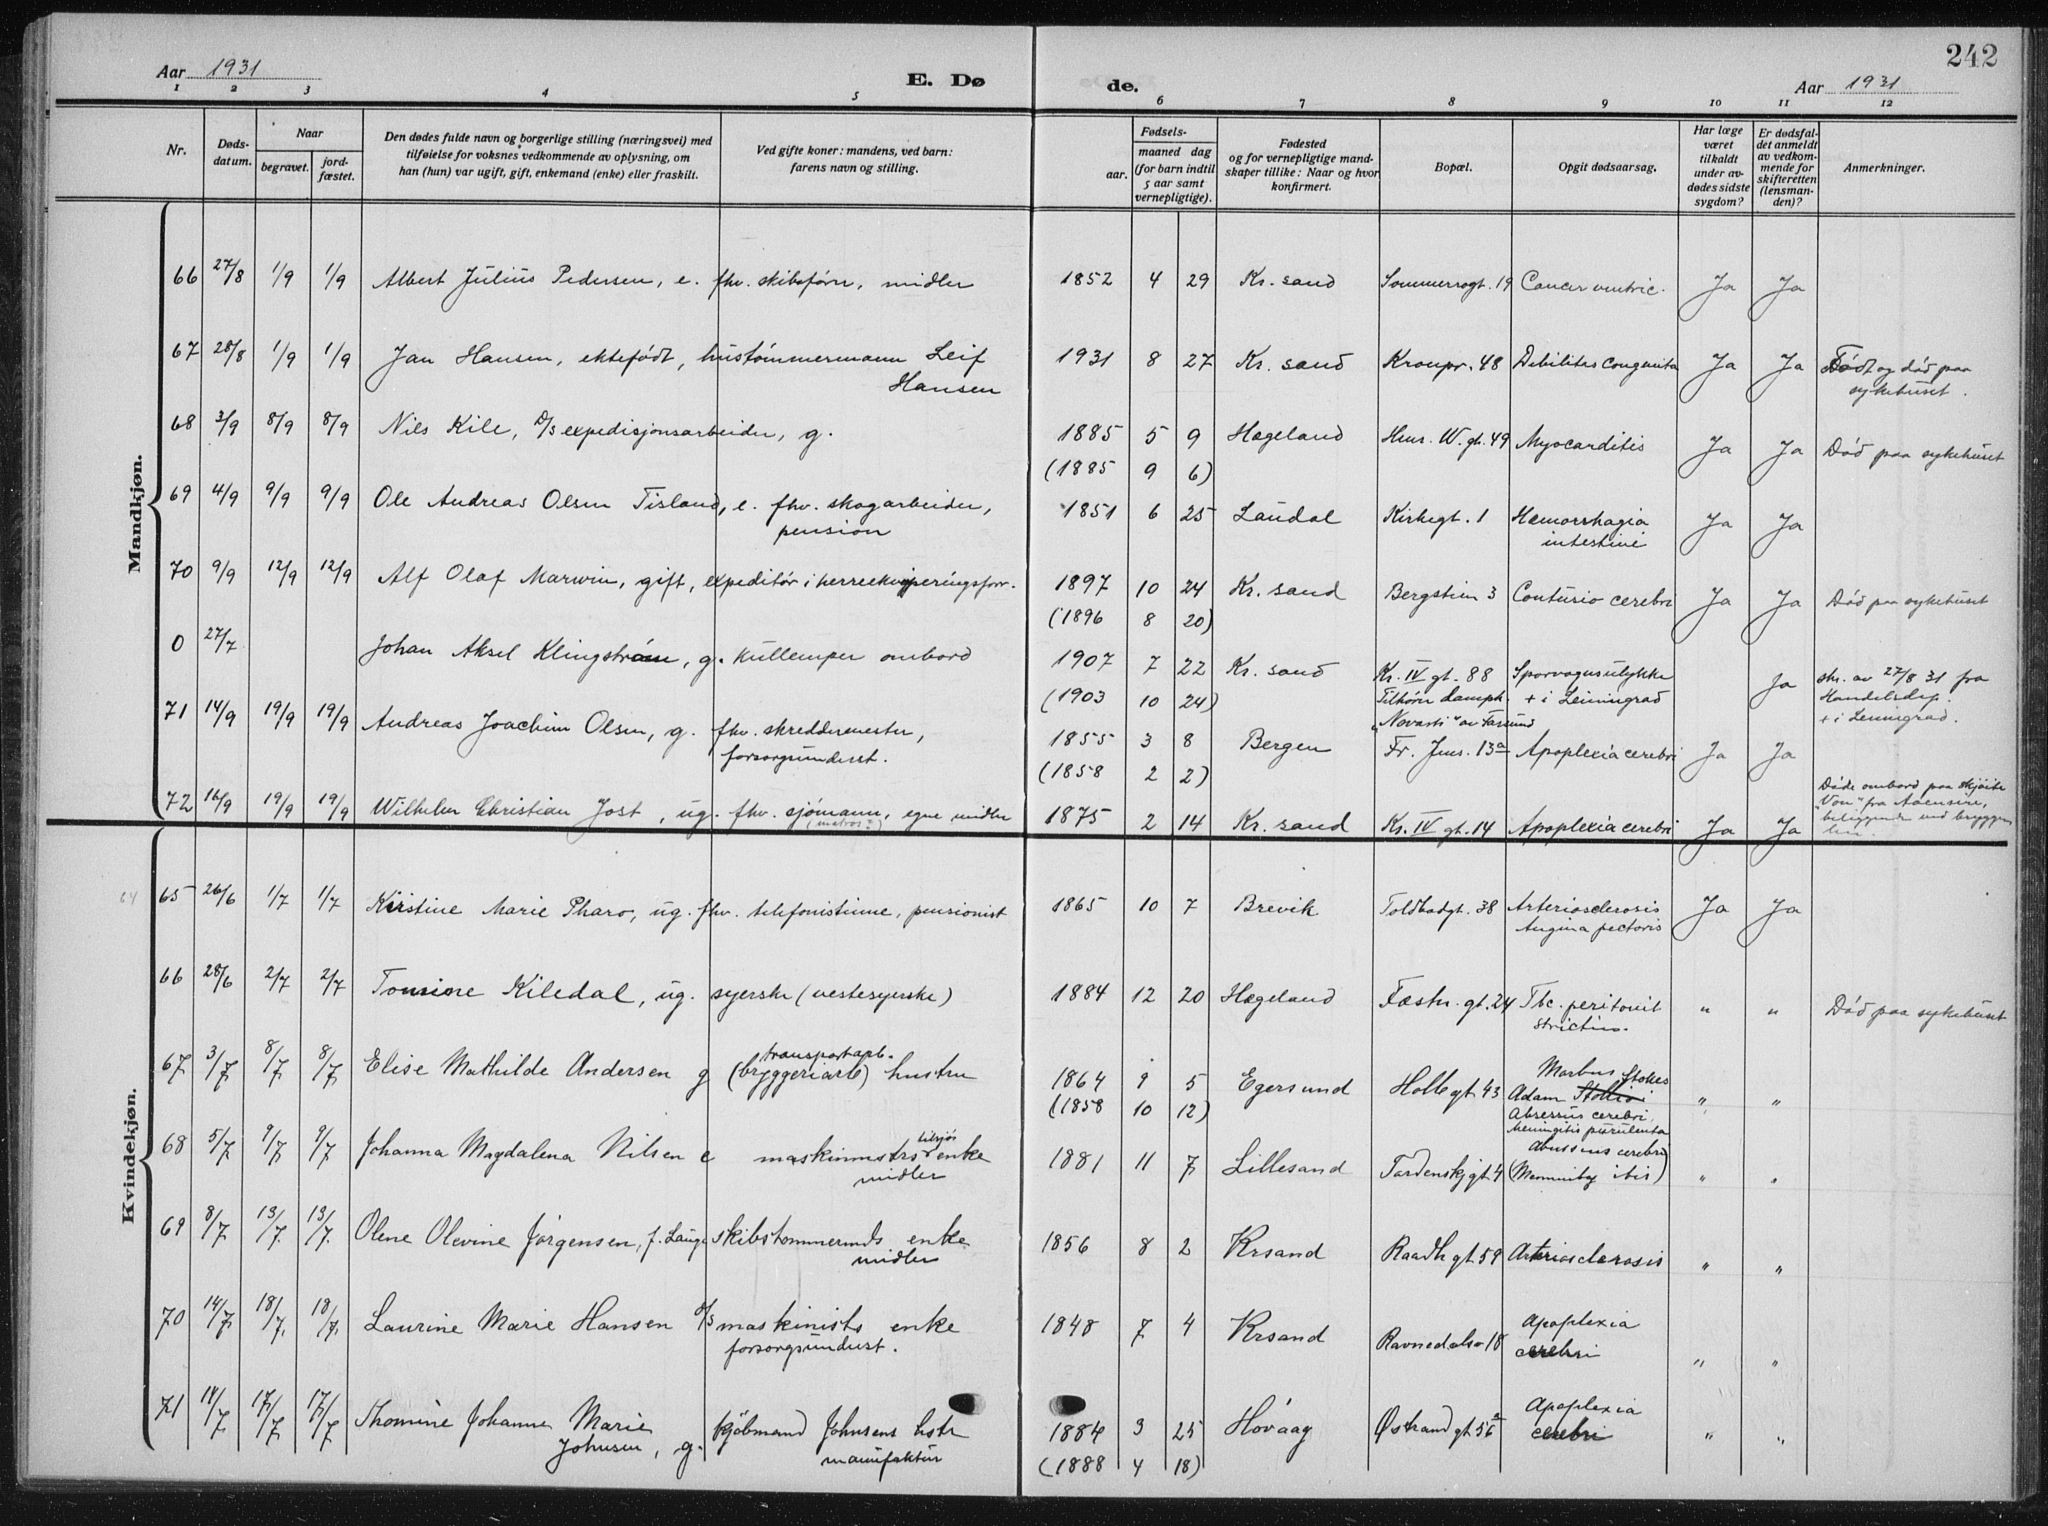 242
Aar 1931 E. Dø de. Aar 1931
1 2 3 4 5 6 7 8 9 10 11 12
Nr. Dødsdatum. Naar begravet. jordfæstet. Den dødes fulde navn og borgerlige stilling (næringsvei) med tilføielse for voksnes vedkommende av oplysning, om han (hun) var ugift, gift, enkemand (enke) eller fraskilt. Ved gifte koner: mandens, ved barn: farens navn og stilling. Fødsels- aar. maaned dag (for barn indtil 5 aar samt vernepligtige). Fødested og for vernepligtige mandskaper tillike: Naar og hvor konfirmert. Bopæl. Opgit dødsaarsag. Har læge været tilkaldt under avdødes sidste sygdom? Er dødsfaldet anmeldt av vedkommende for skifteretten (lensmanden)? Anmerkninger.
Mandkjøn.
66 27/8 1/9 1/9 Albert Julius Pedersen, e. fhv. skibsfører, midler 1852 4 29 Kr.sand Sommerrogt. 19 Cancer ventric. Ja Ja
67 28/8 1/9 1/9 Jan Hansen, ektefødt, hustømmermann Leif 1931 8 27 Kr. sand Kronpr. 48 Debilitas congenita Ja Ja Født og død paa
Hansen sykehuset.
68 3/9 8/9 8/9 Nils Kile, D/S expedisjonsarbeider, g. 1885 5 9 Hægeland Henr. W. gt. 49 Myocarditis Ja Ja Død paa sykehuset
(1885 9 6)
69 4/9 9/9 9/9 Ole Andreas Olsen Tisland, e. fhv. skogarbeider, 1851 6 25 Laudal Kirkegt. 1 Hæmorrhagia Ja Ja
pension intestini
70 9/9 12/9 12/9 Alf Olaf Marwin, gift, expeditør i herreekviperingsforr. 1897 10 24 Kr. sand Bergstien 3 Contusio cerebri Ja Ja Død paa sykehuset
(1896 8 20)
0 27/7 Johan Aksel Klingstrøm, g. kullemper ombord 1907 7 22 Kr. sand Kr. IV gt. 88 Sporvognsulykke Ja skr. av 27/8 31 fra
(1903 10 24) Tilhører dampsk. + i Leningrad Handelsdep.
"Novasti" av Farsund + i Leningrad.
71 14/9 19/9 19/9 Andreas Joachim Olsen, g. fhv. skreddermester, 1855 3 8 Bergen Fr. Jens. 13a Apoplexia cerebri Ja Ja
forsorgsunderst. (1858 2 2)
72 16/9 19/9 19/9 Wilhelm Christian Jost, ug. fhv. sjømann, egne midler 1875 2 14 Kr. sand Kr. IV gt. 14 Apoplexia cerebri Ja Ja Døde ombord paa skjøite
(matros?) "Von" fra
beliggende ved bryggen
Kvindekjøn.
64 65 26/6 1/7 1/7 Kirstine Marie Pharo, ug. fhv. telefonistinne, pensionist 1865 10 7 Brevik Toldbodgt. 38 Arteriosclerosis Ja Ja
Angina pectoris
66 28/6 2/7 2/7 Tomine Kiledal, ug. syerske (vestesyerske) 1884 12 20 Hægeland Fæstn. gt. 24 Tbc. peritonit " " Død paa sykehuset
67 3/7 8/7 8/7 Elise Mathilde Andersen g transportarb. (bryggeriarb) hustru 1864 9 5 Egersund Holbgt 43 Morbus
(1858 10 12) Adam Stokes " "
Abcessus cerebri.
Meningitis purulenta
68 5/7 9/7 9/7 Johanna Magdalena Nilsen e maskinmstrs tilsjøs enke 1881 11 7 Lillesand Tordenskjgt 4 Abcessus cerebri " "
midler
69 8/7 13/7 13/7 Olene Olevine Jørgensen, f. Lauge skibstømmermds enke 1856 8 2 Krsand Raadhgt 59 Arteriosclerosis " "
midler
70 14/7 18/7 18/7 Laurine Marie Hansen D/S maskinists enke 1848 7 4 Krsand Ravnedalsv 18 Apoplexia cerebri " "
forsorgsunderst.
71 14/7 17/7 17/7 Thomine Johanne Marie Johnsen, g. kjøbmand Johnsens hstr 1884 3 25 Høvaag Østrandgt 56a Apoplexia cerebri " "
manufaktur (1888 4 18)